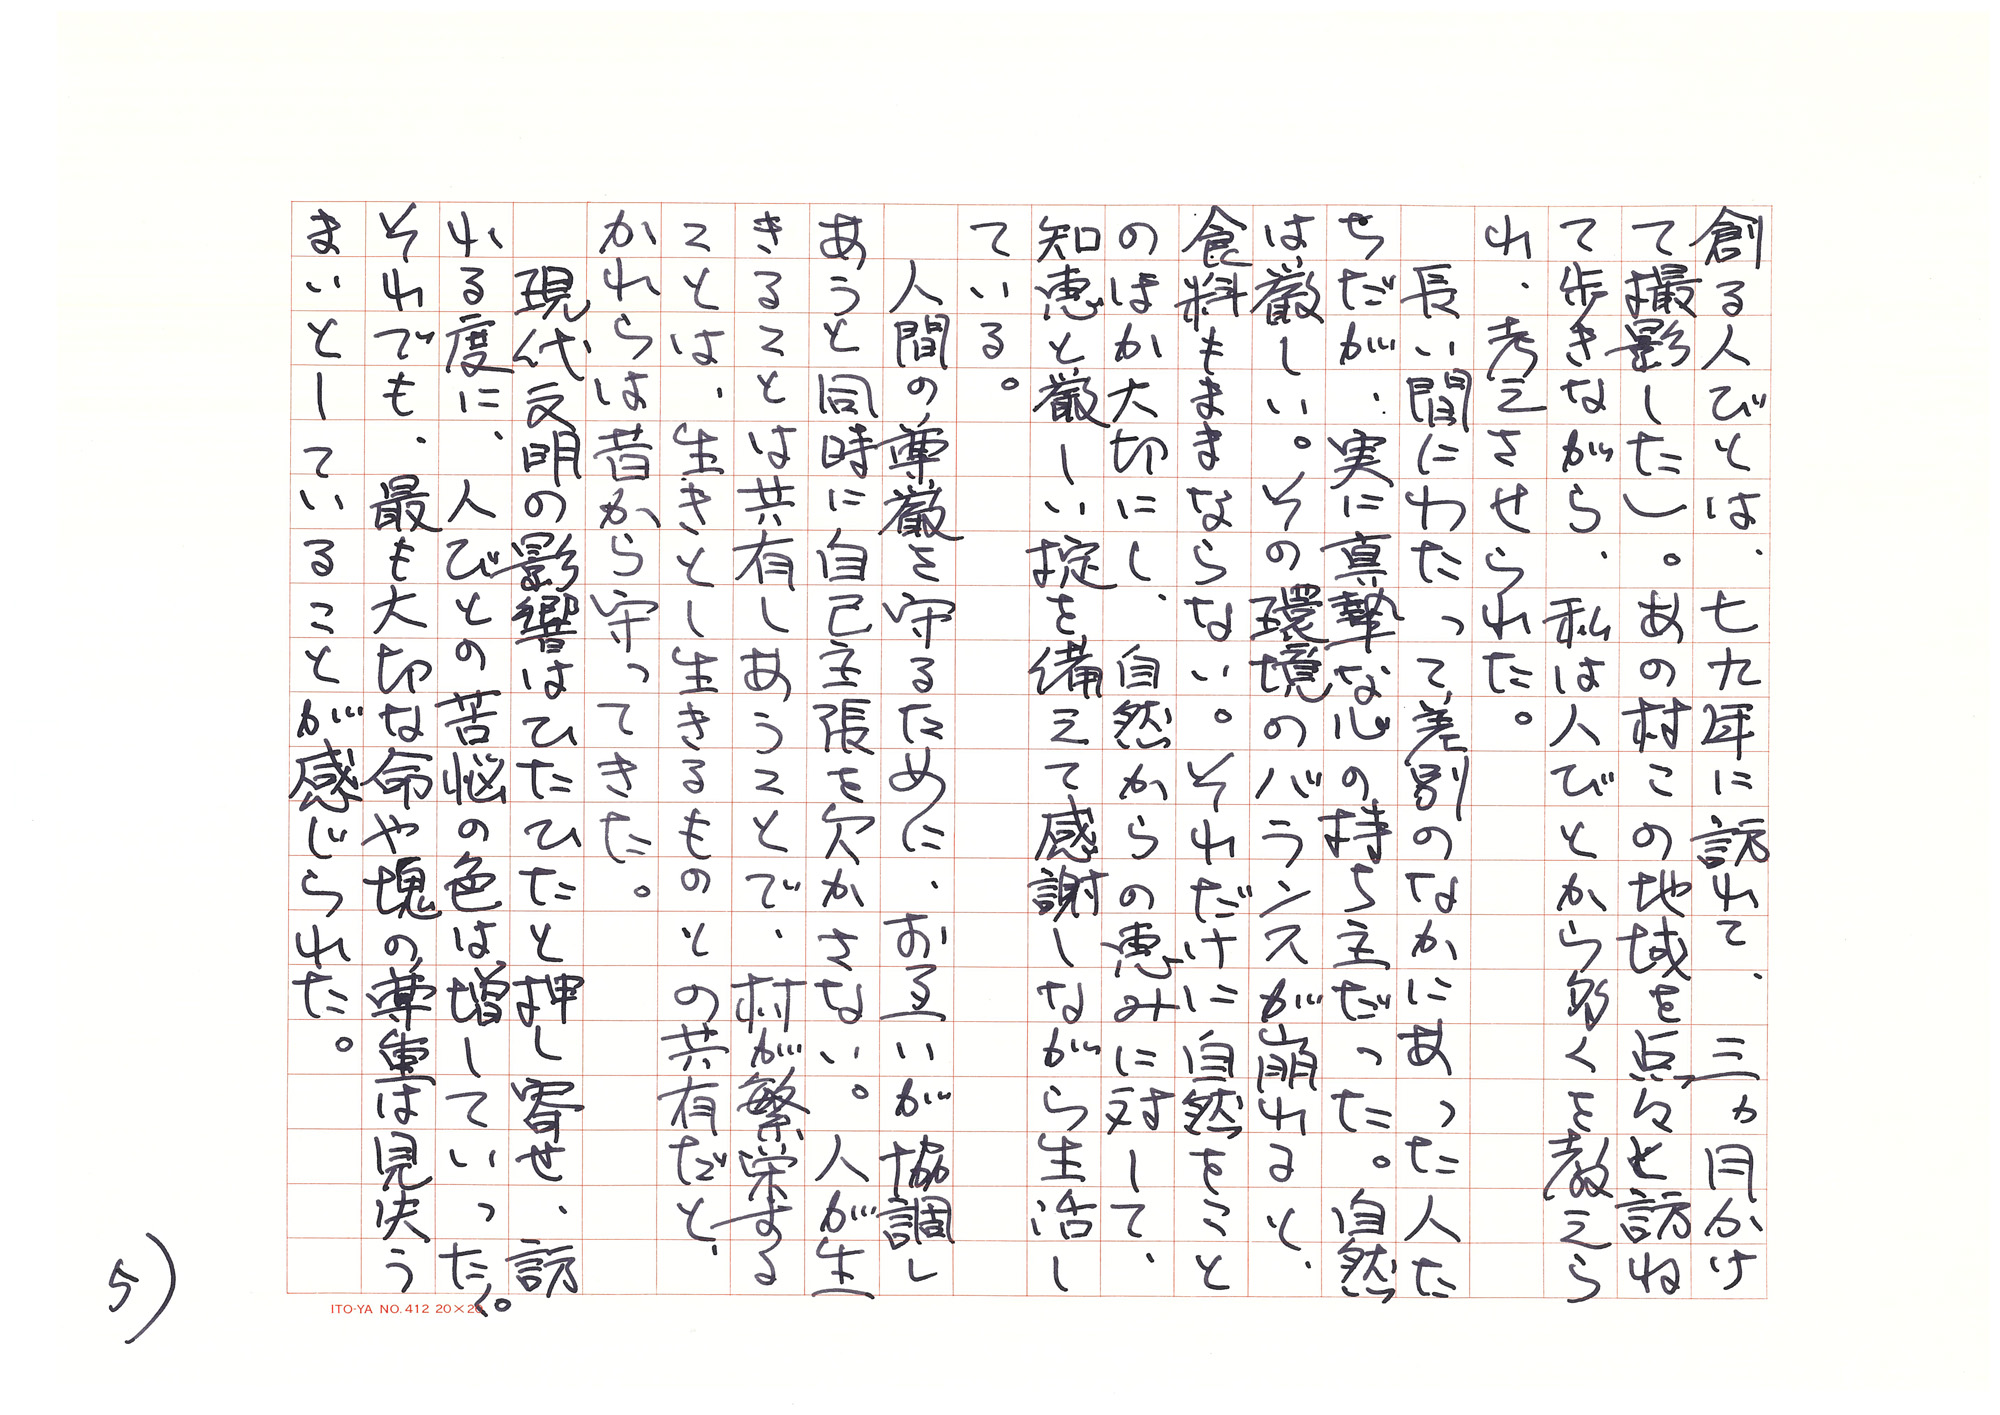 創る人びとは、七九年に訪れて、三ヵ月かけ
て撮影した。あの村この地域を点々と訪ね
て歩きながら、私は人びとから多くを教えら
れ、考えさせられた。
長い間にわたって差別のなかにあった人た
ちだが、実に真摯な心の持ち主だった。自然
は厳しい。その環境のバランスが崩れると、
食料もままならない。それだけに自然をこと
のほか大切にし、自然からの恵みに対して、
知恵と厳しい掟を備えて感謝しながら生活し
ている。
人間の尊厳を守るために、お互いが協調し
あうと同時に自己主張を欠かさない。人が生
きることは共有しあうことで、村が繁栄する
ことは、生きとし生きるものとの共有だと、
かれらは昔から守ってきた。
現代文明の影響はひたひたと押し寄せ、訪
れる度に、人びとの苦悩の色は増していった。
それでも、最も大切な命や塊の尊重は見失う
まいとしていることが感じられた。
ITO-YA NO.412 20×20
5)